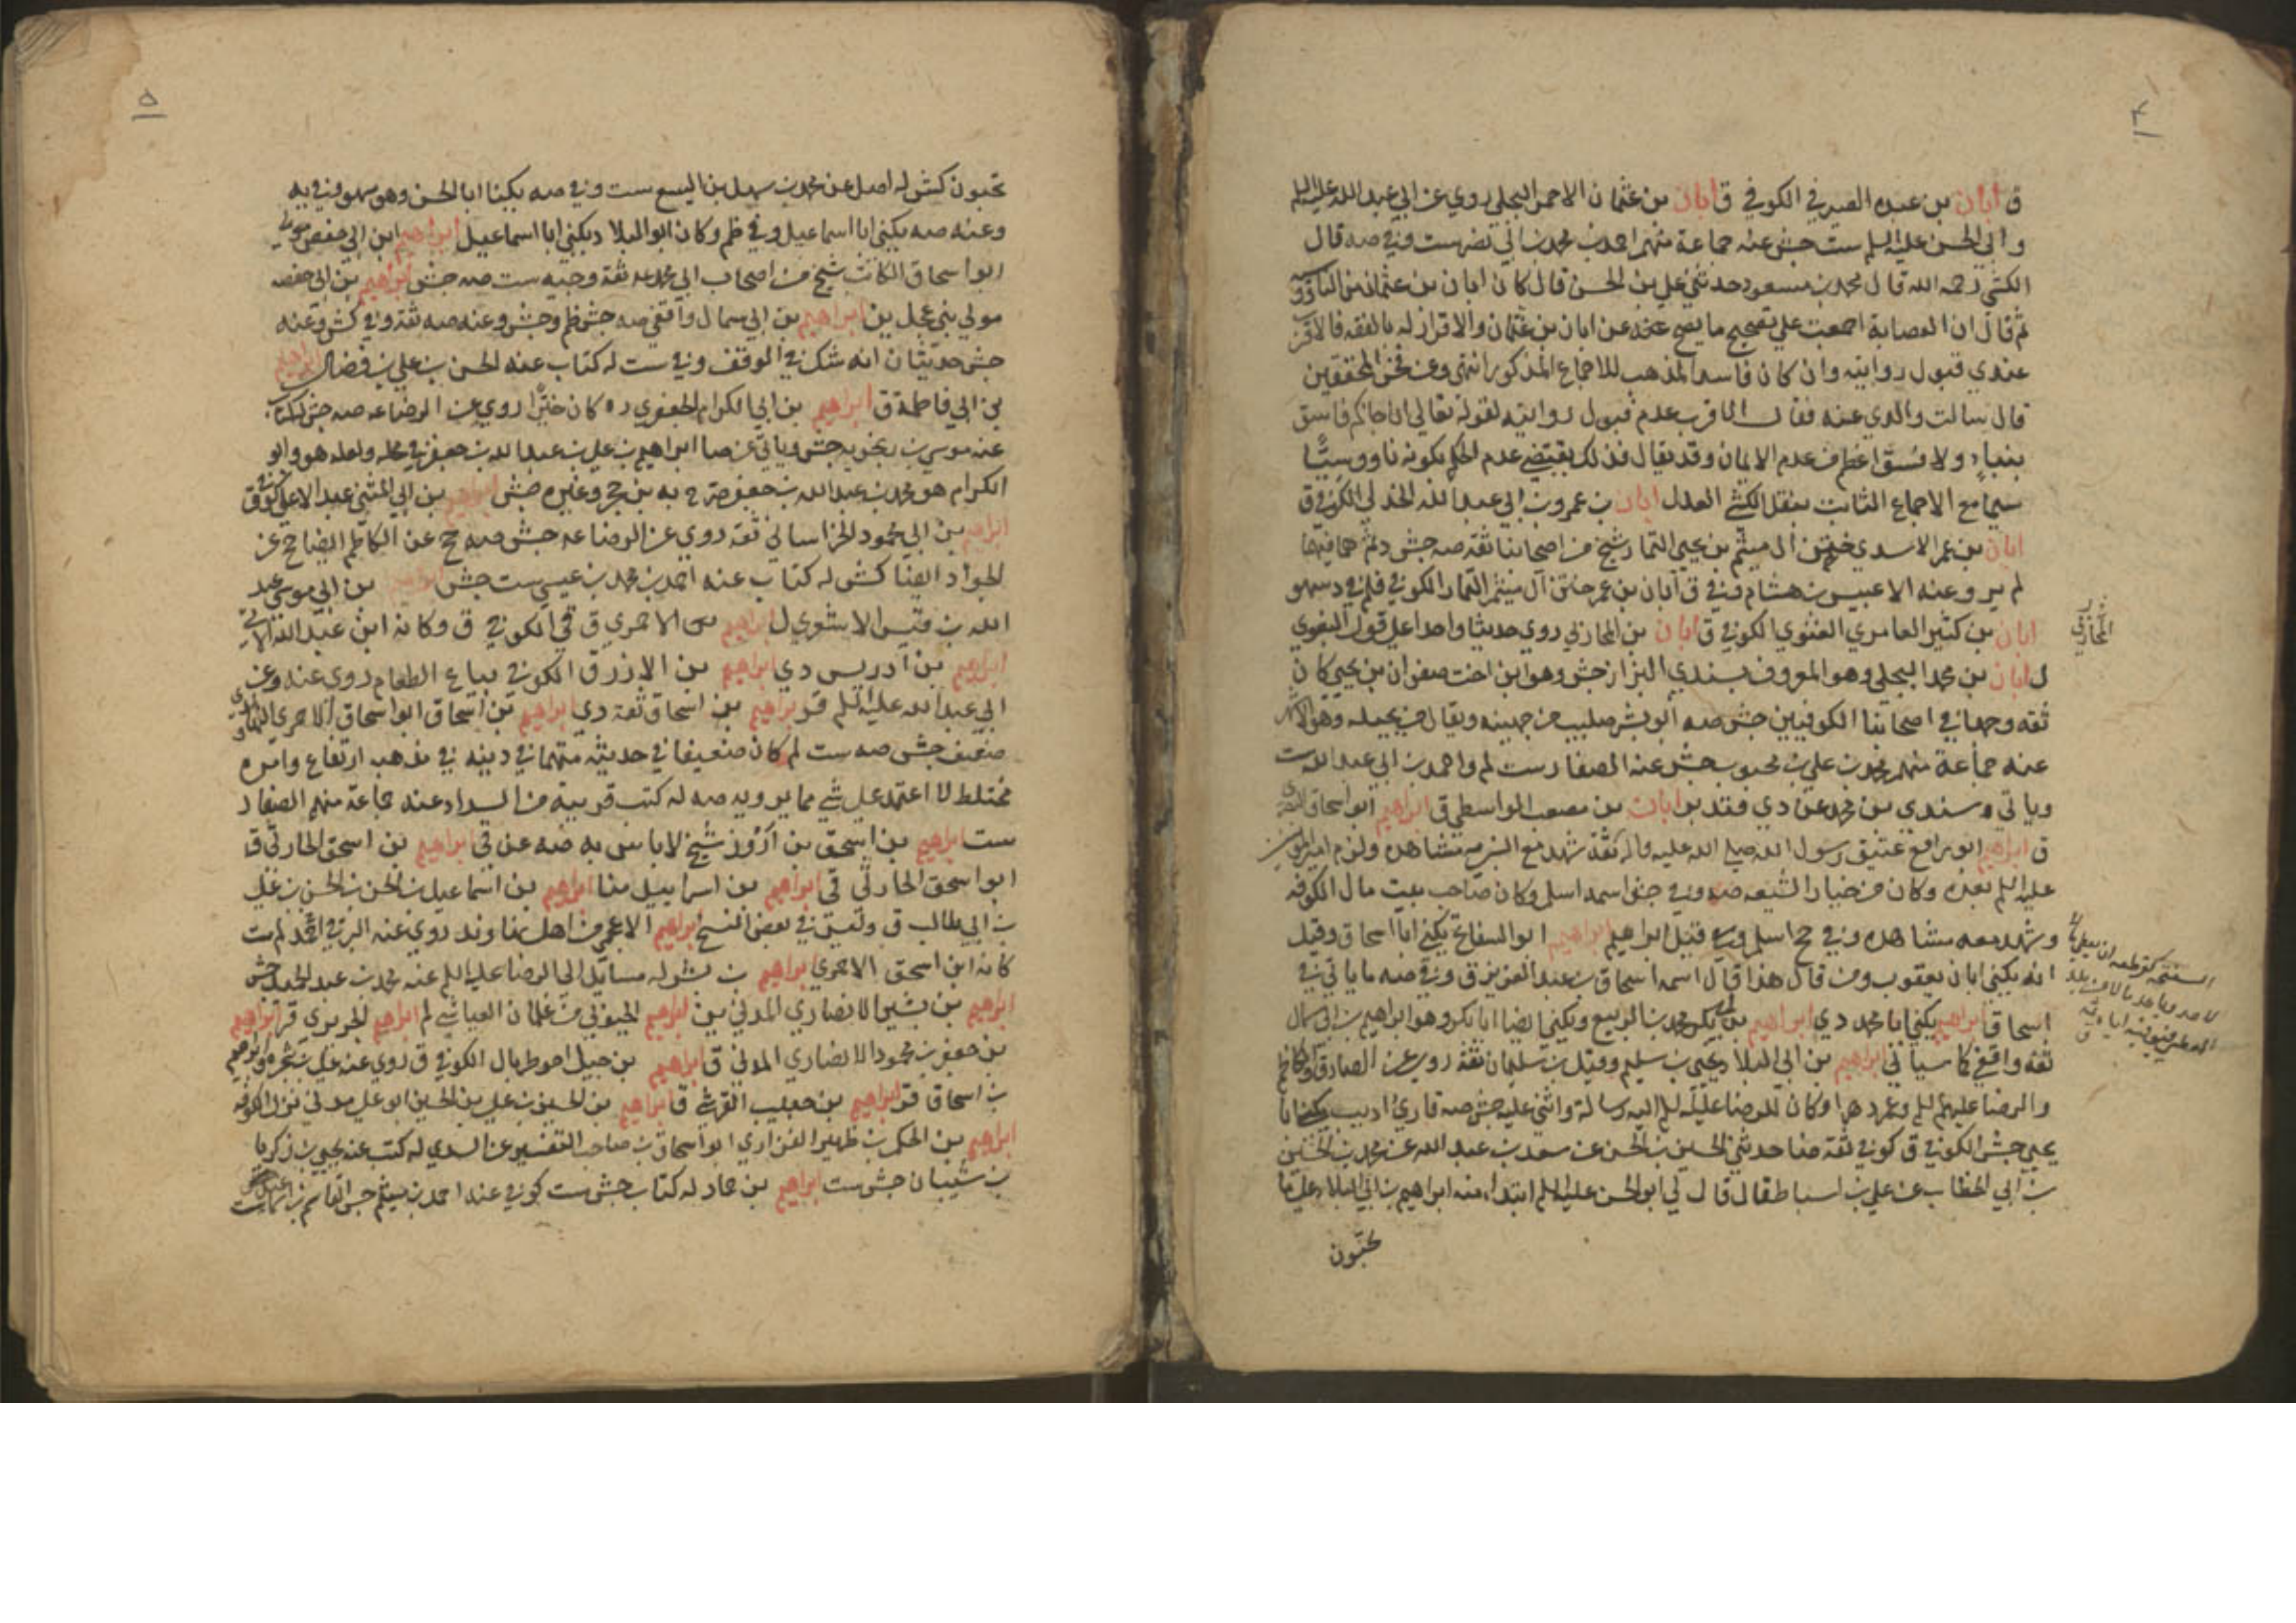 ق ابان بن عبده الصيرفي الكوفي ق ابان بن عثمان الاحمر البجلي روي عن ابي عبد الله عليه السلم
و ابي الحسن عليه السلم ست جش عنه جماعة منهم احمد بن محمد بن ابي نصر ست وفي صه قال
الكشي رحمه الله قال محمد بن مسعود حدثني علي بن الحسن قال كان ابان بن عثمان من الناووسيه
ثم قال ان العصابة اجمعت علي تصحيح ما يصح عنه عن ابان بن عثمان والاقرار له بالفقه فالاقرب
عندي قبول روايته وان كان فاسد المذهب للاجماع المذكور انتهى وعن فخر المحققين
قال سالت والدي عنه فقال الاقرب عدم قبول روايته لقوله تعالي ان جاكم فاسق
بنباء ولا فسق اعظم من عدم الايمان وقد يقال فذلك يقتضي عدم الحكم بكونه ناووسيًّا
سيما مع الاجماع الثابت بنقل الكشي العدل ابان بن عمرو بن ابي عبد الله الجدلي الكوفي ق
ابان بن عمر الاسدي ختن ال ميثم بن يحيي التمار شيخ من اصحابنا ثقة صه جش
لم يرو عنه الا عبيس بن هشام وفي ق ابان بن عمر ختن آل ميثم التمار الكوفي
ابان بن كثير العامري الغنوي الكوفي ق ابان بن المحاربي روي حديثا واحدا علي قول البغوي
ل ابان بن محمد البجلي وهو المعروف بسندي البزاز جش وهو ابن اخت صفوان بن يحيي كان
ثقه وجها في اصحابنا الكوفيين جش صه ابو بشر صليب من جهينه ويقال من بجيله وهو الاشهر
عنه جماعة منهم محمد بن علي بن محبوب جش عنه الصفار ست لم واحمد بن ابي عبد الله ست
وياتي سندي بن محمد عن دي ابان بن مصعب الواسطي ق ابراهيم ابو اسحاق البصري
ق ابراهيم ابو رافع عتيق رسول الله صلي الله عليه واله ثقة شهد مع النبي ص مشاهده ولزم امير المومنين
عليه السلم بعده وكان من خيار الشيعه صه وفي جش اسمه اسلم وكان صاحب بيت مال الكوفه
وشهد معه مشاهده وفي جح اسلم وقيل ابراهيم ابراهيم ابو السفاتج يكني ابا اسحاق وقيل
انه يكني ابا يعقوب ومن قال هذا قال اسمه اسحاق بن عبد العزيز ق وفي صه ما ياتي في
اسحاق ابراهيم يكني ابا محمد دي ابراهيم بن ابي بكر محمد بن الربيع ويكني ايضا ابا بكر وهو ابراهيم بن ابي سمال
ثقه واقفي كما سياتي ابراهيم بن ابي البلاد يحيي بن سليم وقيل بن سليمان ثقة روي عن الصادق والكاظم
والرضا عليهم السلم وعمر دهرا وكان للرضا عليه السلم اليه رسالة واثني عليه جش صه قاري اديب يكني ابا
يحيي جش الكوفي ق كوفي ثقة ضا حدثني الحسين بن الحسن عن سعد بن عبد الله عن محمد بن الحسين
بن ابي الخطاب عن علي بن اسباط قال قال لي ابو الحسن عليه السلم ابتداء منه ابراهيم بن ابي البلاد علي ما
تحبون
المحاربي
تحبون كش له اصل عن محمد بن سهل بن اليسع ست وفي صه يكنا ابا الحسن وهو سهو وفي به
وعنه صه يكني ابا اسماعيل وفي ظم وكان ابو البلاد يكني ابا اسماعيل ابراهيم ابن ابي حفص
ابو اسحاق الكاتب شيخ من اصحاب ابي محمد ع ثقة وجيه ست صه جش ابراهيم بن ابي حفصه
مولي بني عجل ين ابراهيم بن ابي سمال واقفي صه جش ظم وجش وعنه صه ثقة وفي كش وعنه
جش حديثان انه شك في الوقف وفي ست له كتاب عنه الحسن بن علي بن فضال ابراهيم
بن ابي فاطمة ق ابراهيم بن ابي الكرام الجعفري ره كان خيّرا روي عن الرضا ع صه جش
عنه موسي بن جش وياتي عن ضا ابراهيم بن علي بن عبد الله بن جعفر في محله ولعله هو وابو
الكرام هو محمد بن عبد الله بن جعفر صرح به بن حجر وغيره جش ابراهيم بن ابي المثني عبد الاعلي كوفي ق
ابراهيم بن ابي محمود الخراساني ثقة روي عن الرضا ع جش صه جح عن الكاظم ايضا جح عن
الجواد ايضا كش له كتاب عنه احمد بن محمد بن عيسي ست جش ابراهيم بن ابي موسي عبد
الله بن قيس الاشعري ل ابراهيم الاحمري ق في الكوفي ق وكانه ابن عبد الله الاتي
ابراهيم بن ادريس دي ابراهيم بن الازرق الكوفي بياع الطعام روي عنه وعن
ابي عبد الله عليه السلم قر ابراهيم بن اسحاق ثقة دي ابراهيم بن اسحاق ابو اسحاق الاحمري النهاوندي
ضعيف جش صه ست لم كان ضعيفا في حديثه متهما في دينه في مذهبه ارتفاع وامره
مختلط لا اعتمد علي شي مما يرويه صه له كتب قريبة من السداد عنه جماعة منهم الصفار
ست ابراهيم بن اسحق بن ازور شيخ لا باس به ضه عن في ابراهيم بن اسحق الحارثي ق
ابو اسحق الحارثي في ابراهيم بن اسراييل ضا ابراهيم بن اسماعيل بن الحسن بن الحسن بن علي
بن ابي طالب ق وليس في بعض النسخ ابراهيم الاعجمي من اهل نهاوند روي عنه البرقي احمد لم ست
كانه ابن اسحق الاحمري ابراهيم بن بشر له مسايل الي الرضا عليه السلم عنه محمد بن عبد الحميد جش
ابراهيم بن بشير الانصاري المدني ين ابراهيم الحبوبي من غلمان العياشي لم ابراهيم الجريري قر ابراهيم
بن جعفر بن محمود الانصاري المدني ق ابراهيم بن جميل اخو طربال الكوفي ق روي عنه علي بن شجره قر ابراهيم
بن اسحاق قر ابراهيم بن حبيب القرشي ق ابراهيم بن الحسين بن علي بن الحسين ابو علي مدني نزل الكوفه
ابراهيم بن الحكم بن ظهير الفزاري ابو اسحاق بن صاحب التفسير عن السدي له كتب عنه يحيي بن زكريا
بن شيبان جش ست ابراهيم بن حماد له كتاب جش ست كوفي عنه احمد بن ميثم جش القاسم بن اسماعيل ست
٥